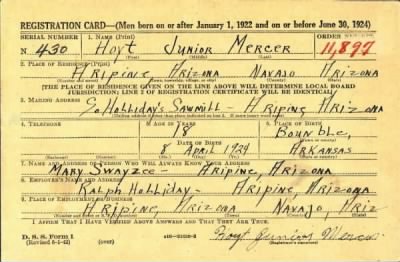 REGISTRATION CARD—(Men born on or after January 1, 1922 and on or before June 30, 1924)
SERIAL NUMBER 1. NAME (Print) ORDER NUMBER
N 430 Hoyt Junior Mercer 11,897
(First) (Middle) (Last)
2. PLACE OF RESIDENCE (Print)
Aripine, Arizona Navajo Arizona
(Number and street) (Town, township, village, or city) (County) (State)
[THE PLACE OF RESIDENCE GIVEN ON THE LINE ABOVE WILL DETERMINE LOCAL BOARD
JURISDICTION; LINE 2 OF REGISTRATION CERTIFICATE WILL BE IDENTICAL]
3. MAILING ADDRESS
Holliday's Sawmill - Aripine Arizona
[Mailing address if other than place indicated on line 2. If same, insert word same]
4. TELEPHONE 5. AGE IN YEARS 6. PLACE OF BIRTH
18
DATE OF BIRTH
8 April 1924 Arkansas
(Exchange) (Number) (Mo.) (Day) (Yr.) (State or country)
7. NAME AND ADDRESS OF PERSON WHO WILL ALWAYS KNOW YOUR ADDRESS
Mary Swayzee - Aripine, Arizona
8. EMPLOYER'S NAME AND ADDRESS
Ralph Holliday - Aripine, Arizona
9. PLACE OF EMPLOYMENT OR BUSINESS
Aripine, Arizona Navajo, Ariz
(Number and street or R. F. D. number) (Town) (County) (State)
I AFFIRM THAT I HAVE VERIFIED ABOVE ANSWERS AND THAT THEY ARE TRUE.
D. S. S. Form 1
(Revised 6-1-42) (over) Hoyt Junior Mercer
(Registrant's signature)